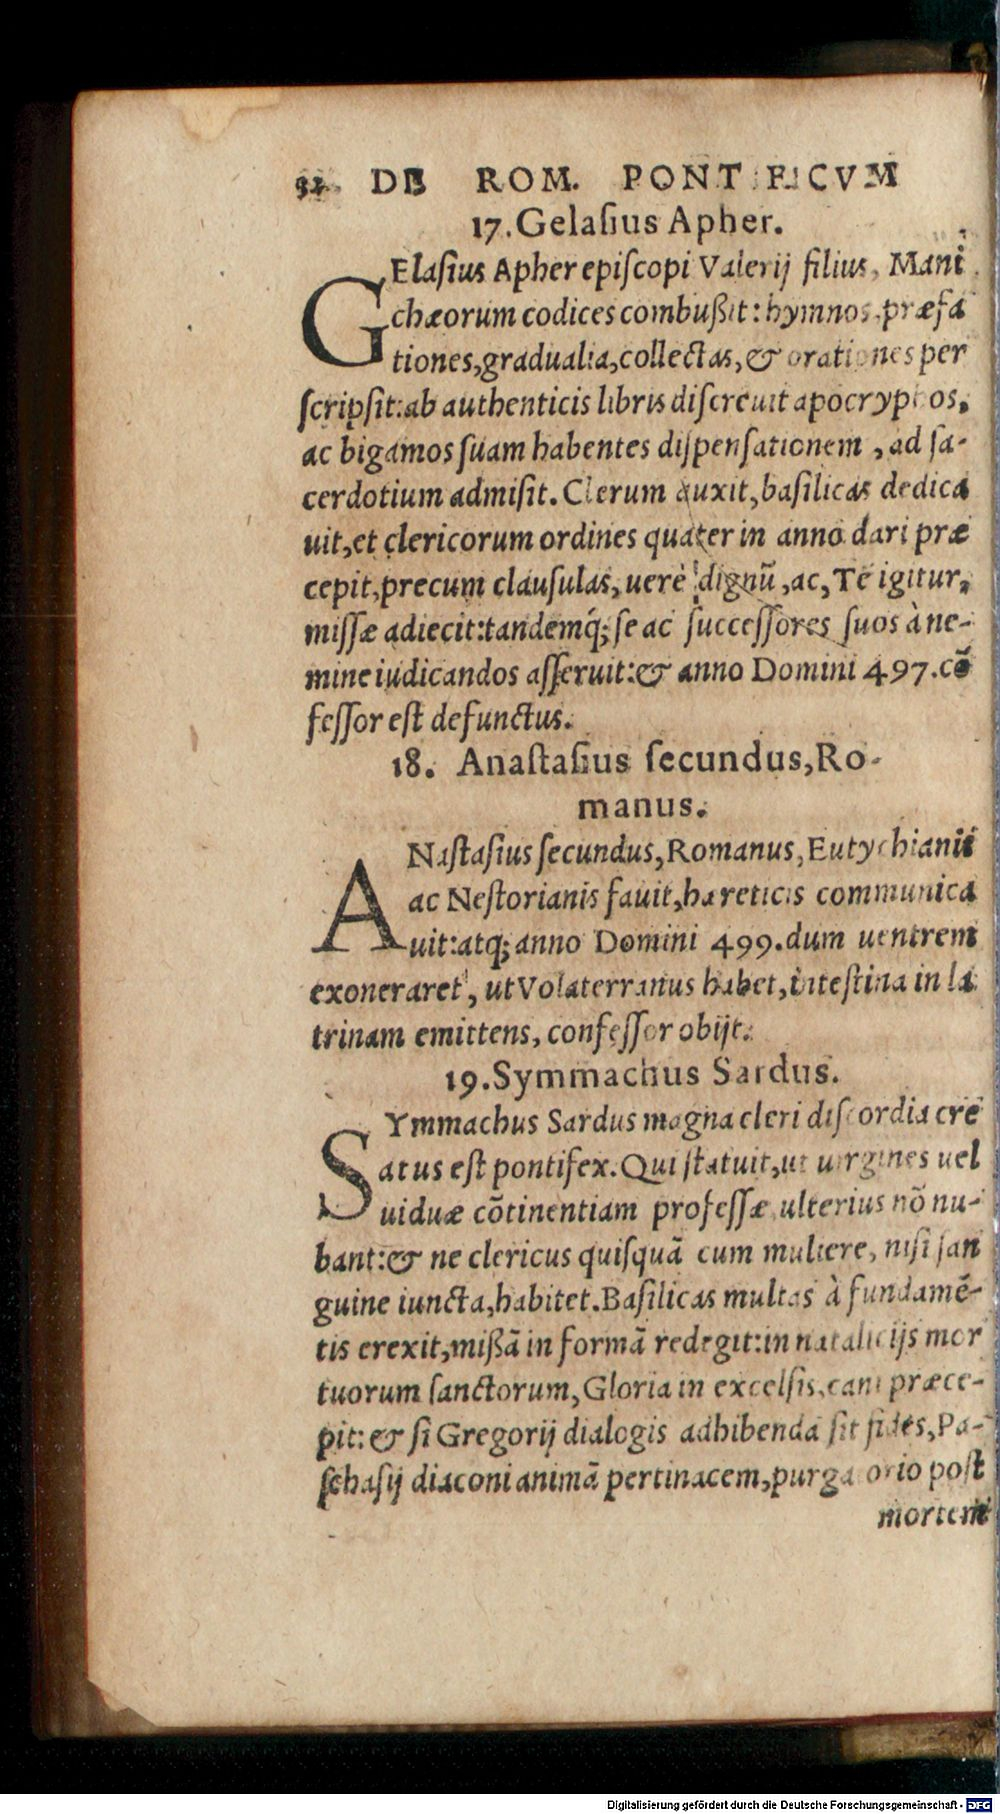 32 DE ROM. PONTIFICVM
17. Gelaſius Apher.
GElaſius Apher epiſcopi Valerij filius, Mani
chæorum codices combußit: hymnos, præfa
tiones, gradualia, collectas, & orationes per
ſcripſit: ab authenticis libris diſcreuit apocryphos,
ac bigamos ſuam habentes diſpenſationem, ad ſa-
cerdotium admiſit. Clerum auxit, baſilicas dedica
uit, et clericorum ordines quater in anno dari præ
cepit, precum clauſulas, uerè dignũ, ac, Te igitur,
miſſæ adiecit: tandemq́; ſe ac ſucceſſores ſuos à ne-
mine iudicandos aſſeruit: & anno Domini 497. cõ
feſſor eſt defunctus.
18. Anaſtaſius ſecundus, Ro-
manus.
ANaſtaſius ſecundus, Romanus, Eutychianis
ac Neſtorianis fauit, hæreticis communica
uit: atq; anno Domini 499. dum uentrem
exoneraret, ut Volaterranus habet, inteſtina in la
trinam emittens, confeſſor obijt.
19. Symmachus Sardus.
SYmmachus Sardus magna cleri diſcordia cre
atus eſt pontifex. Qui ſtatuit, ut uirgines uel
uiduæ cõtinentiam profeſſæ, ulterius nõ nu-
bant: & ne clericus quiſquã cum muliere, niſi ſan
guine iuncta, habitet. Baſilicas multas à fundamẽ-
tis erexit, mißã in formã redegit: in natalicijs mor
tuorum ſanctorum, Gloria in excelſis, cani præce-
pit: & ſi Gregorij dialogis adhibenda ſit fides, Pa-
ſchaſij diaconi animã pertinacem, purgatorio poſt
mortem
Digitalisierung gefördert durch die Deutsche Forschungsgemeinschaft - DFG